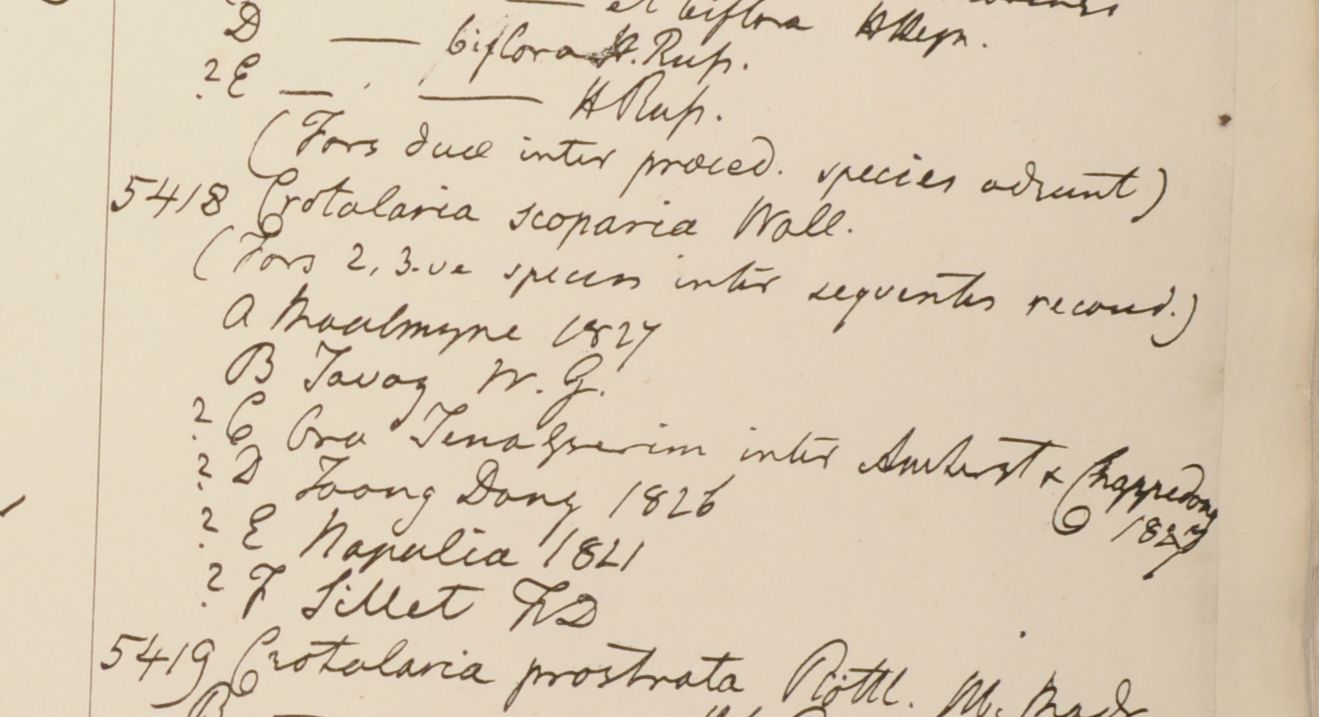 — et biflora HHeyn.
D — biflora H. Rup.
? E — . — H Rup.
(Fors duæ inter præced. species adsunt)
5418 Crotalaria scoparia Wall.
(Fors 2, 3-ve species inter sequentes recond.)
A Moalmyne 1827
B Tavoy W. G.
? C Ora Tenasserim inter Amherst & Chappedong
1827
? D Toong Dong 1826
? E Napalia 1821
? F Sillet FD
5419 Crotalaria prostrata Rottl. M. Madr
B —